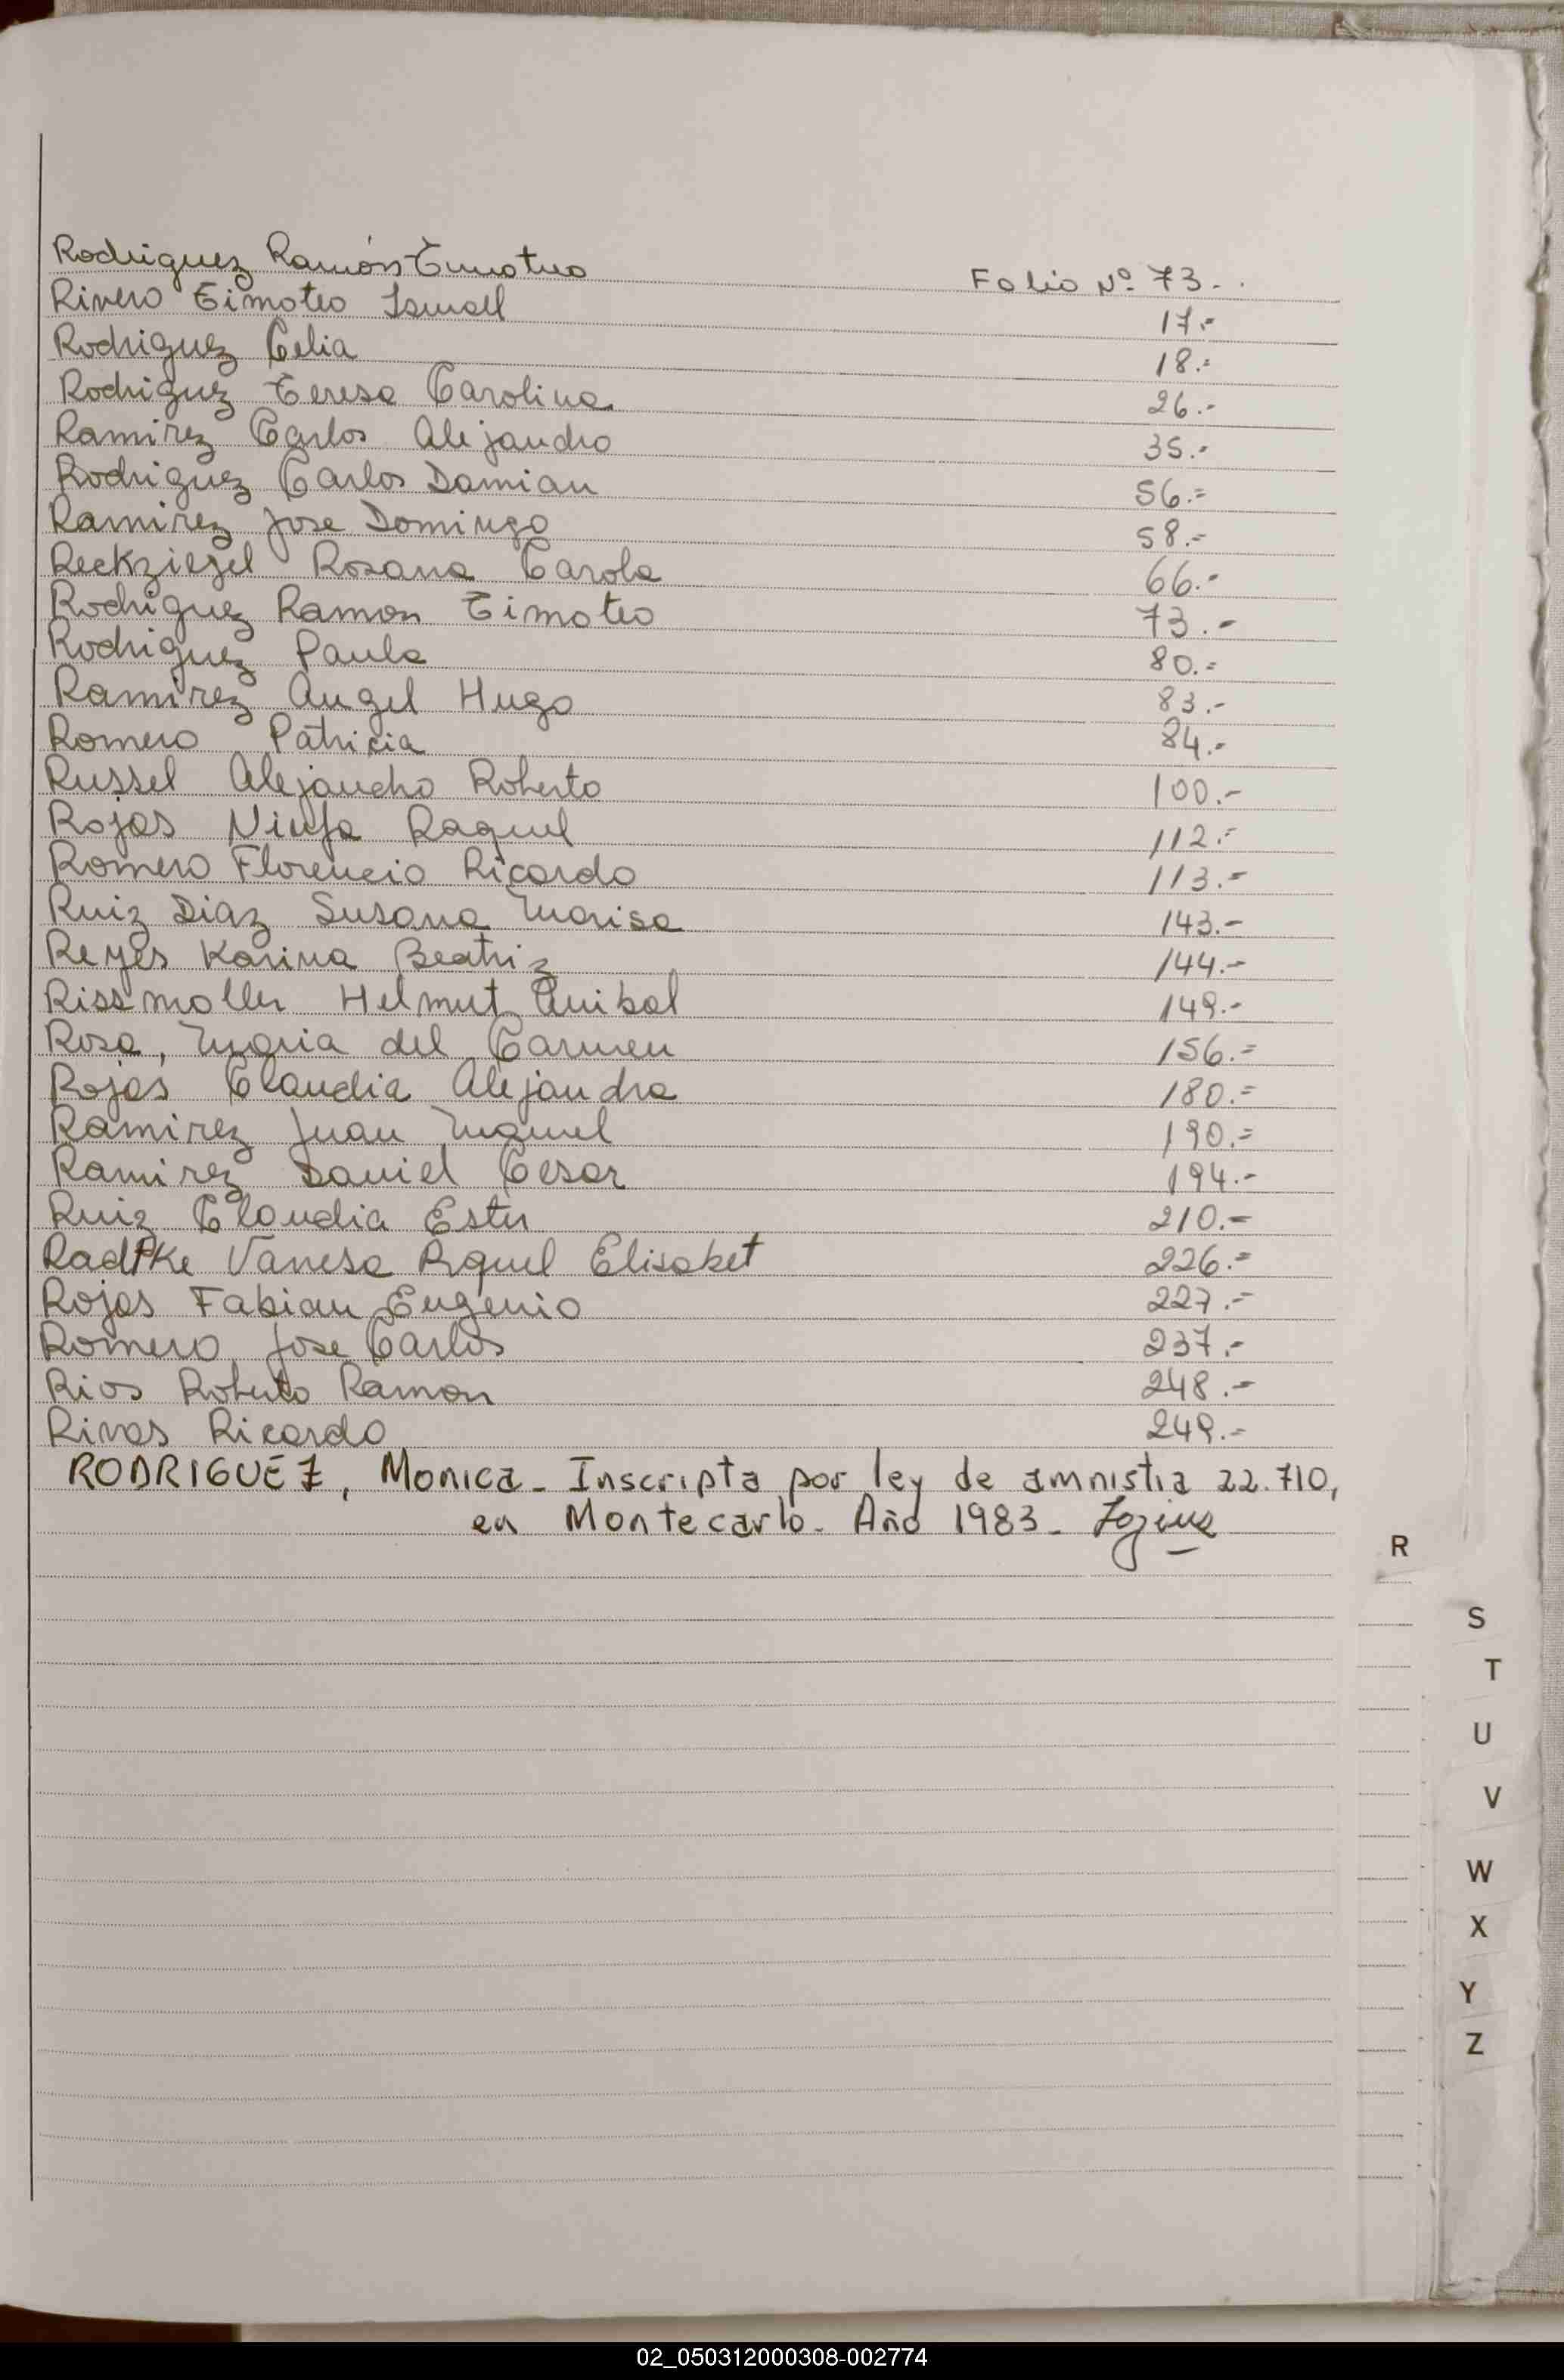 Rodriguez Ramón Timoteo Folio Nº 73.-
Rivero Timoteo Ismael 17.-
Rodriguez Celia 18.=
Rodriguez Teresa Carolina 26.-
Ramirez Carlos Alejandro 35.-
Rodriguez Carlos Damian 56.=
Ramirez Jose Domingo 58.-
Reckziegel Rosana Carola 66.-
Rodriguez Ramon Timoteo 73.-
Rodriguez Paula 80.=
Ramirez Angel Hugo 83.-
Romero Patricia 84.-
Russel Alejandro Roberto 100.-
Rojas Ninfa Raquel 112.=
Romero Florencio Ricardo 113.-
Ruiz Diaz Susana Marisa 143.-
Reyes Karina Beatriz 144.-
Rissmoller Helmut Anibal 149.-
Rosa, Maria del Carmen 156.=
Rojas Claudia Alejandra 180.=
Ramirez Juan Manuel 190.=
Ramirez Daniel Cesar 194.-
Ruiz Claudia Ester 210.-
Radtke Vanesa Rquel Elisabet 226.=
Rojas Fabian Eugenio 227.-
Romero Jose Carlos 237.-
Rios Roberto Ramon 248.-
Rivas Ricardo 249.-
RODRIGUEZ, Monica- Inscripta por ley de amnistia 22.710,
en Montecarlo- Año 1983-
R
S
T
U
V
W
X
Y
Z
02_050312000308-002774